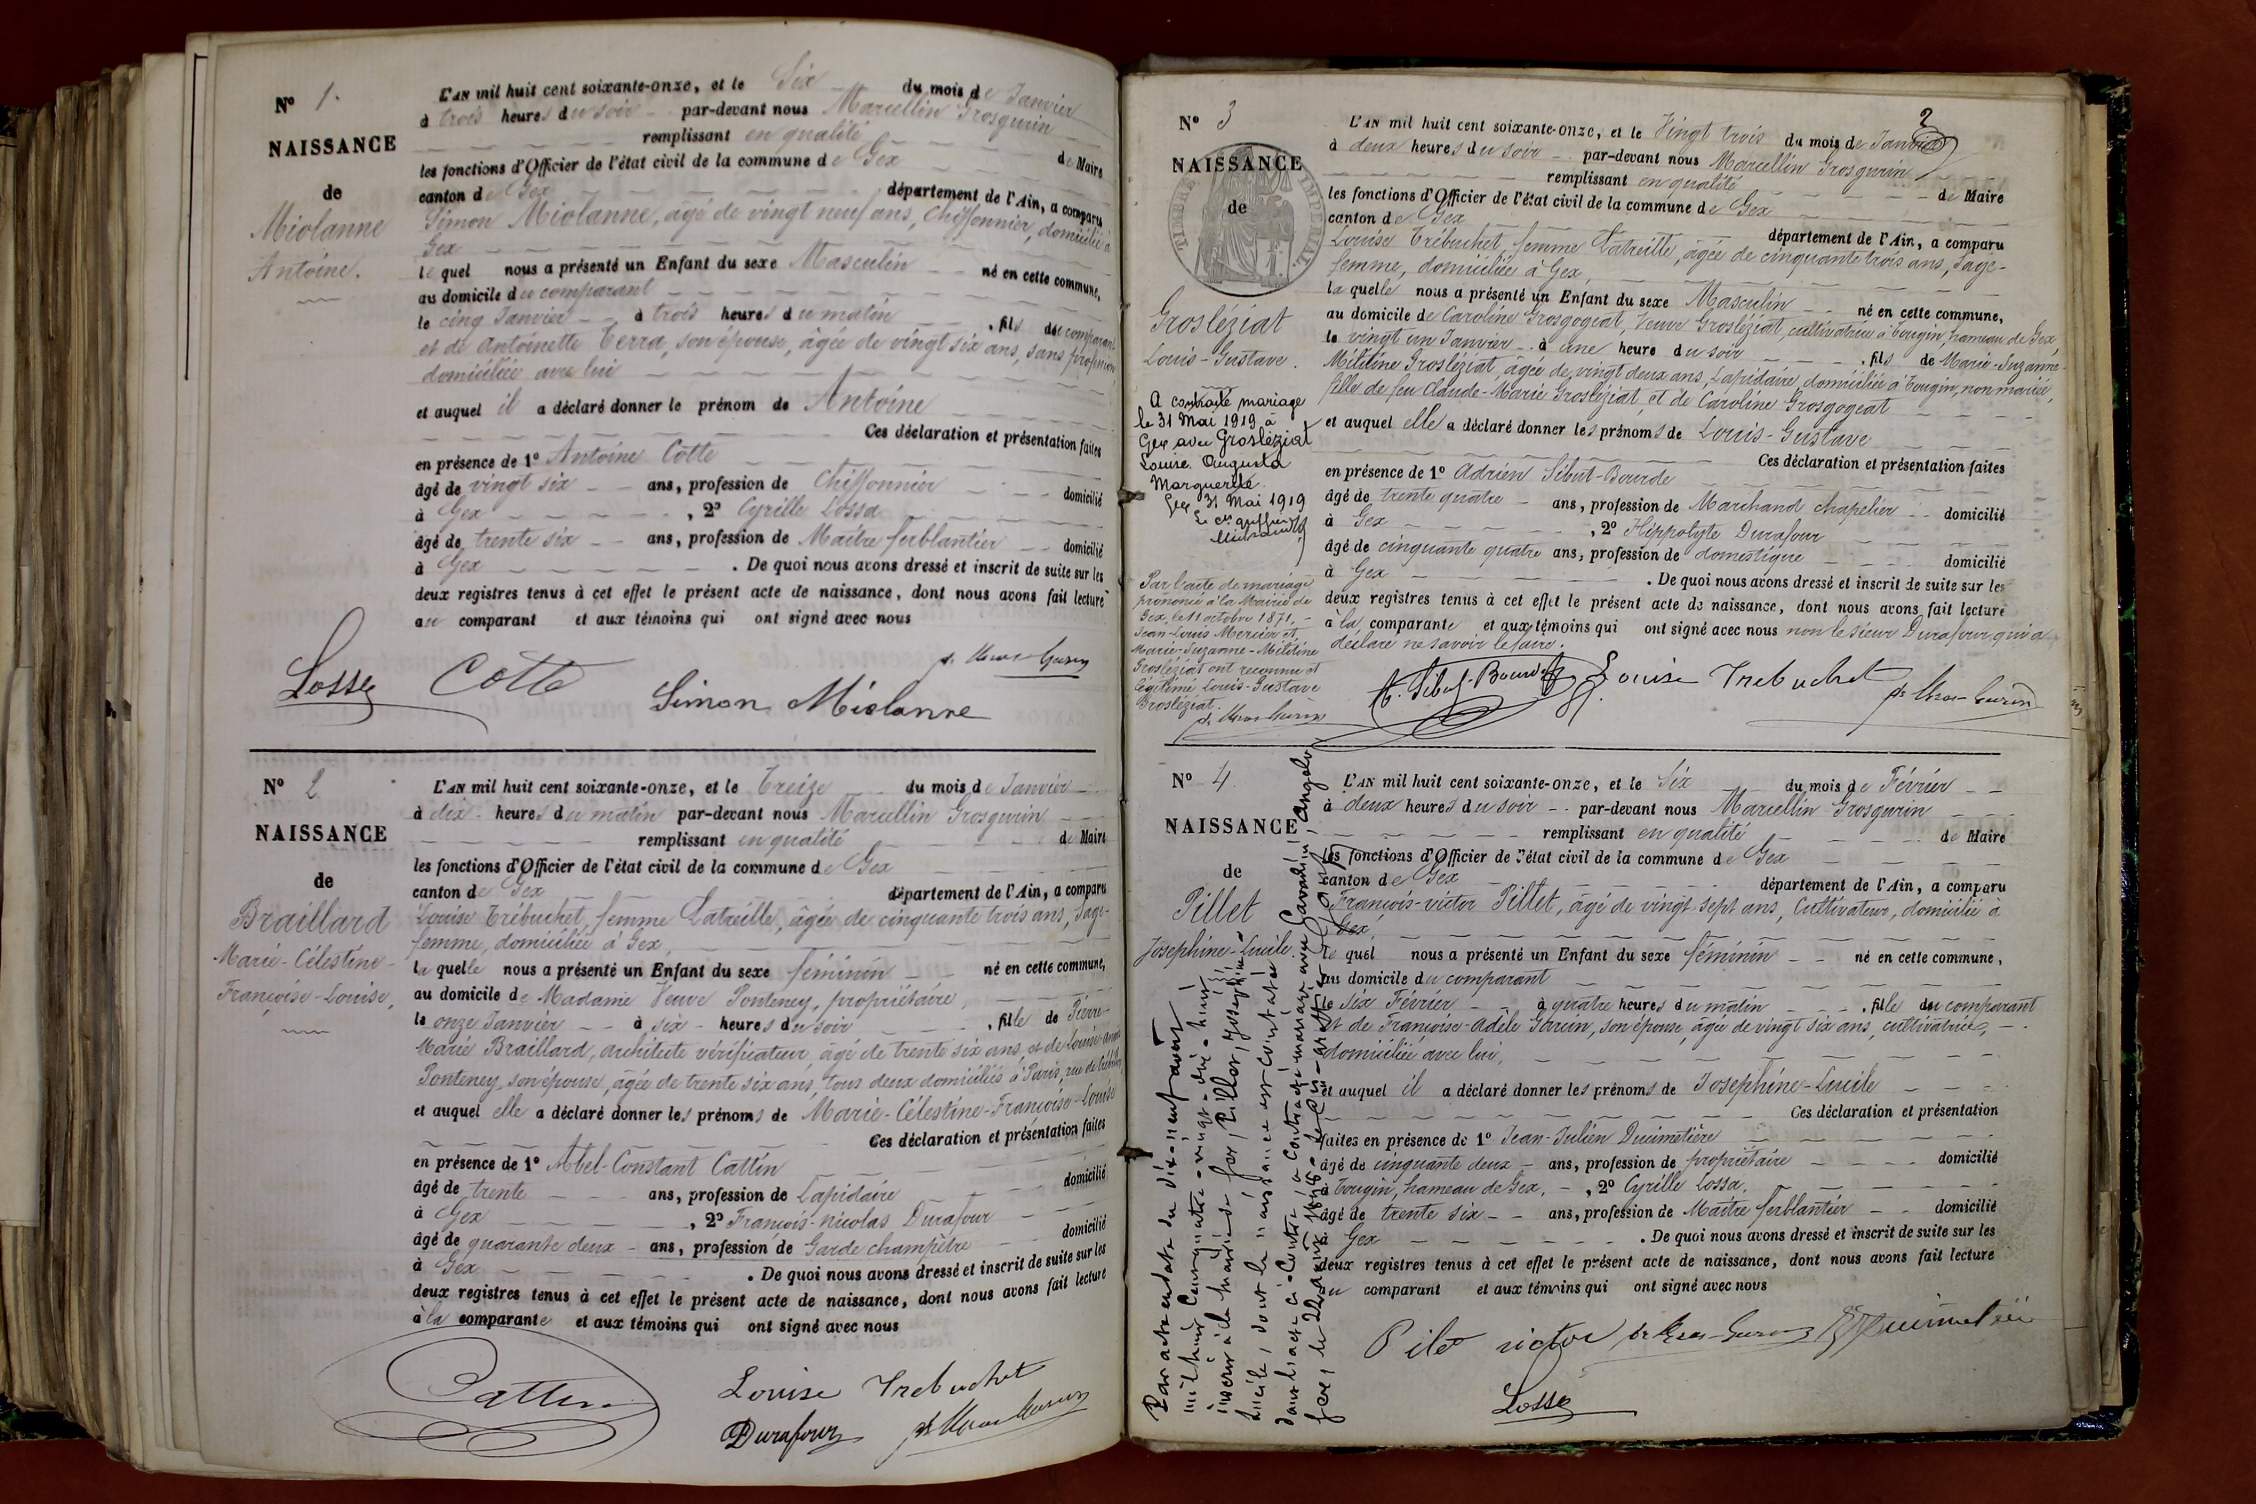 N° 1.
NAISSANCE
de
Miolanne
Antoine.
L'AN mil huit cent soixante-onze, et le Six du mois de Janvier
à trois heures du soir par-devant nous Marcellin Grosgurin
remplissant en qualité de Maire
les fonctions d'Officier de l'état civil de la commune de Gex
canton de Gex département de l'Ain, a comparu
Simon Miolanne, âgé de vingt neuf ans, Chiffonnier, domicilié à
Gex
lequel nous a présenté un Enfant du sexe Masculin né en cette commune,
au domicile du comparant
le cinq Janvier à trois heures du matin, fils du comparant
et de Antoinette Terra, son épouse, âgée de vingt six ans, sans profession,
domiciliée avec lui
et auquel il a déclaré donner le prénom de Antoine
Ces déclaration et présentation faites
en présence de 1° Antoine Cotte
âgé de vingt six ans, profession de Chiffonnier domicilié
à Gex, 2° Cyrille Lossa
âgé de trente six ans, profession de Maître ferblantier domicilié
à Gex. De quoi nous avons dressé et inscrit de suite sur les
deux registres tenus à cet effet le présent acte de naissance, dont nous avons fait lecture
au comparant et aux témoins qui ont signé avec nous
Lossa Cotte Simon Miolanne
N° 2
NAISSANCE
de
Braillard
Marie-Célestine-
Françoise-Louise,
L'AN mil huit cent soixante-onze, et le Treize du mois de Janvier
à dix heures du matin par-devant nous Marcellin Grosgurin
remplissant en qualité de Maire
les fonctions d'Officier de l'état civil de la commune de Gex
canton de Gex département de l'Ain, a comparu
Louise Trébuchet, femme Latreille, âgée de cinquante trois ans, Sage-
femme, domiciliée à Gex
laquelle nous a présenté un Enfant du sexe féminin né en cette commune,
au domicile de Madame Veuve Ponteney, propriétaire,
le onze Janvier à six heures du soir, fille de Pierre-
Marie Braillard, architecte vérificateur, âgé de trente six ans, et de Louise
Ponteney, son épouse, âgée de trente six ans, tous deux domiciliés à Paris, rue de
et auquel elle a déclaré donner les prénoms de Marie-Célestine-Françoise-Louise
Ces déclaration et présentation faites
en présence de 1° Abel-Constant Cattin
âgé de trente ans, profession de Lapidaire domicilié
à Gex, 2° François-Nicolas Durafour
âgé de quarante deux ans, profession de Garde champêtre domicilié
à Gex. De quoi nous avons dressé et inscrit de suite sur les
deux registres tenus à cet effet le présent acte de naissance, dont nous avons fait lecture
à la comparante et aux témoins qui ont signé avec nous
Cattin Louise Trebuchet
Durafour
2
N° 3
NAISSANCE
de
TIMBRE IMPERIAL
Grosléziat
Louis-Gustave.
A contracté mariage
le 31 Mai 1919 à
Gex avec Grosléziat
Louise Augusta
Marguerite.
Gex 31 Mai 1919
Par l'acte de mariage
prononcé à la Mairie de
Gex, le 11 octobre 1871,
Jean-Louis Mercier et
Marie-Suzanne-Mélitine
Grosléziat ont reconnu et
légitimé Louis-Gustave
Grosléziat.
L'AN mil huit cent soixante-onze, et le Vingt trois du mois de Janvier
à deux heures du soir par-devant nous Marcellin Grosgurin
remplissant en qualité de Maire
les fonctions d'Officier de l'état civil de la commune de Gex
canton de Gex département de l'Ain, a comparu
Louise Trébuchet, femme Latreille, âgée de cinquante trois ans, Sage-
femme, domiciliée à Gex
laquelle nous a présenté un Enfant du sexe Masculin né en cette commune,
au domicile de Caroline Grosgogeat, Veuve Grosléziat, cultivatrice à Tougin, hameau de Gex,
le vingt un Janvier à une heure du soir, fils de Marie-Suzanne-
Mélitine Grosléziat, âgée de vingt deux ans, Lapidaire, domiciliée à Tougin, non mariée,
fille de feu Claude-Marie Grosléziat, et de Caroline Grosgogeat
et auquel elle a déclaré donner les prénoms de Louis-Gustave
Ces déclaration et présentation faites
en présence de 1° Adrien Sibut-Bourde
âgé de trente quatre ans, profession de Marchand chapelier domicilié
à Gex, 2° Hippolyte Durafour
âgé de cinquante quatre ans, profession de domestique domicilié
à Gex. De quoi nous avons dressé et inscrit de suite sur les
deux registres tenus à cet effet le présent acte de naissance, dont nous avons fait lecture
à la comparante et aux témoins qui ont signé avec nous non le sieur Durafour, qui a
déclaré ne savoir le faire.
A. Sibut-Bourde Louise Trebuchet
N° 4.
NAISSANCE
de
Pillet
Joséphine-Lucile.
Par acte en date du dix-neuf août
mil huit cent quatre-vingt-dix-huit
inscrit à la mairie de Gex, Pillet, Joséphine-
Lucile, dont la naissance est constatée
dans l'acte ci-contre, a contracté mariage avec Gavadini, Angelo,
Gex, le 22 août 1898. Le
L'AN mil huit cent soixante-onze, et le Six du mois de Février
à deux heures du soir par-devant nous Marcellin Grosgurin
remplissant en qualité de Maire
les fonctions d'Officier de l'état civil de la commune de Gex
canton de Gex département de l'Ain, a comparu
François-Victor Pillet, âgé de vingt sept ans, Cultivateur, domicilié à
Gex,
lequel nous a présenté un Enfant du sexe féminin né en cette commune,
au domicile du comparant
le Six Février à quatre heures du matin, fille du comparant
et de Françoise-Adèle Gorun, son épouse, âgée de vingt six ans, cultivatrice,
domiciliée avec lui,
et auquel il a déclaré donner les prénoms de Joséphine-Lucile
Ces déclaration et présentation
faites en présence de 1° Jean-Julien Ducimetière
âgé de cinquante deux ans, profession de propriétaire domicilié
à Tougin, hameau de Gex, 2° Cyrille Lossa.
âgé de trente six ans, profession de Maître ferblantier domicilié
à Gex. De quoi nous avons dressé et inscrit de suite sur les
deux registres tenus à cet effet le présent acte de naissance, dont nous avons fait lecture
au comparant et aux témoins qui ont signé avec nous
Pilet victor Ducimetière
Lossa